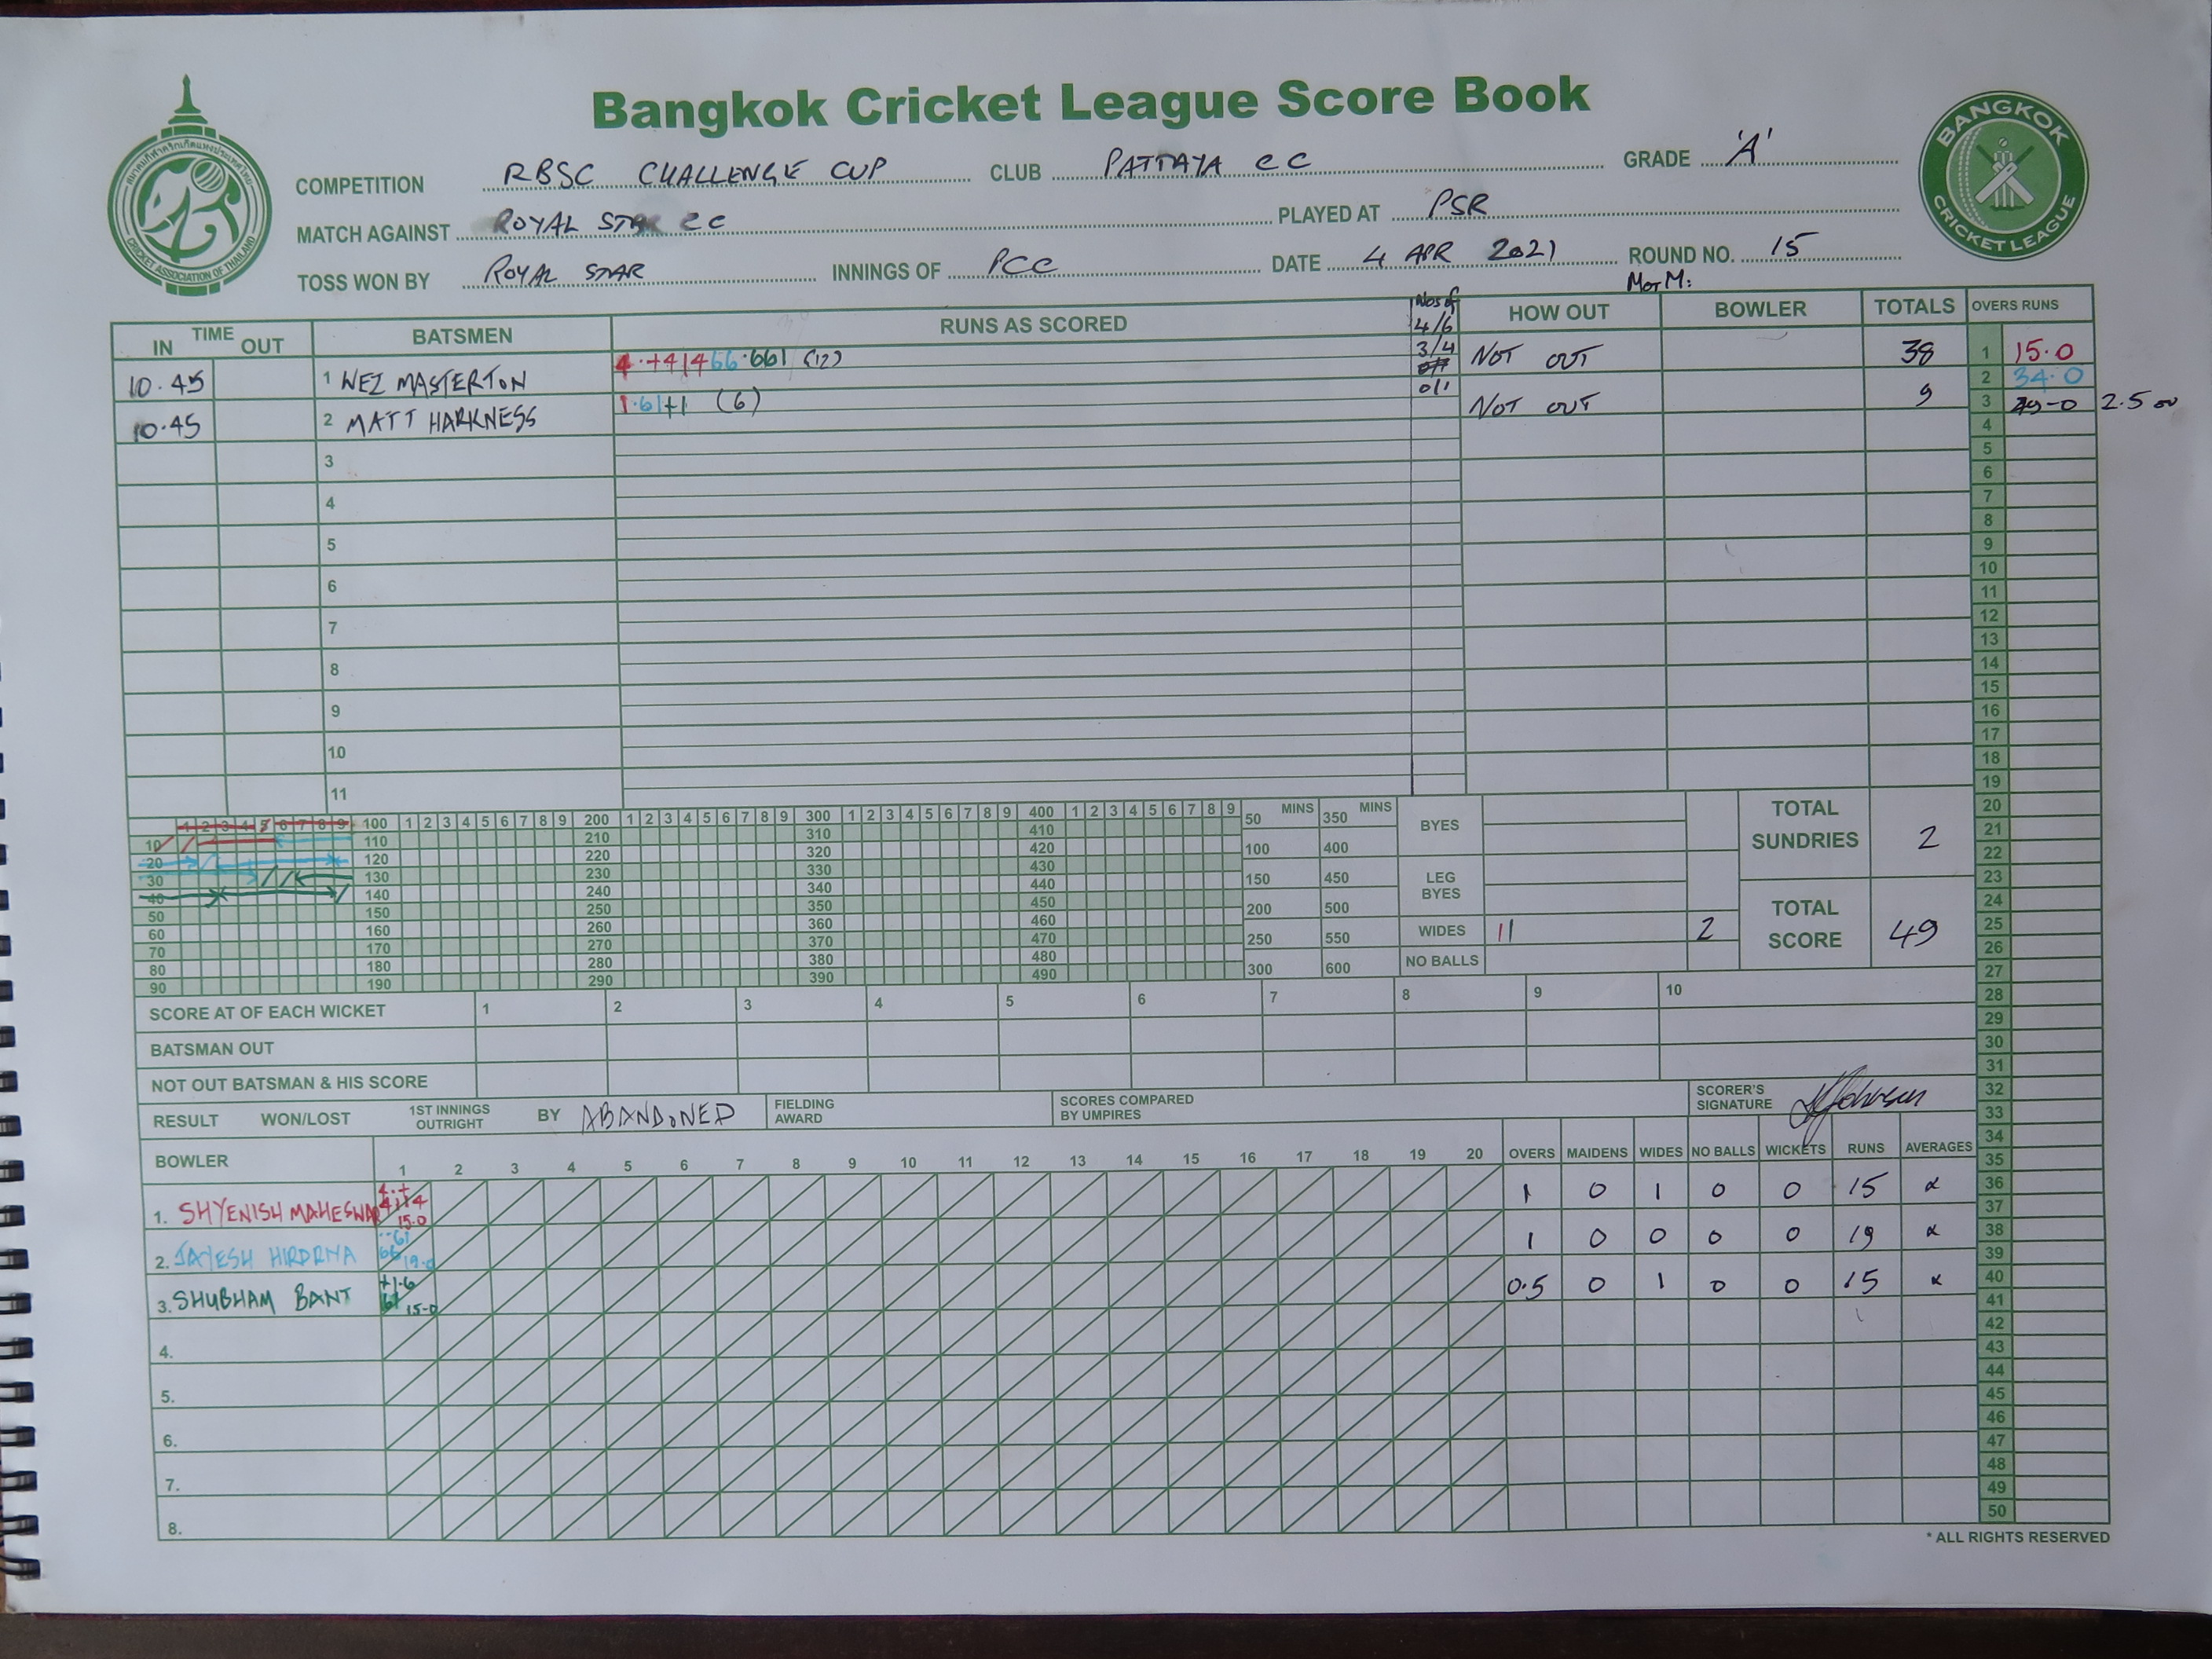 Bangkok Cricket League Score Book
สมาคมกีฬาคริกเก็ตแห่งประเทศไทย
CRICKET ASSOCIATION OF THAILAND
BANGKOK CRICKET LEAGUE
COMPETITION RBSC CHALLENGE CUP CLUB PATTAYA CC GRADE 'A'
MATCH AGAINST ROYAL STAR CC PLAYED AT PSR
TOSS WON BY ROYAL STAR INNINGS OF PCC DATE 4 APR 2021 ROUND NO. 15
MOTM:
TIME IN OUT BATSMEN RUNS AS SCORED Nos of 4/6 HOW OUT BOWLER TOTALS OVERS RUNS
10.45 1 WEZ MASTERTON 4·+41466·661 (12) 3/4 NOT OUT 38 1 15.0
2 34.0
10.45 2 MATT HARKNESS 1·61+1 (6) 0/1 NOT OUT 9 3 49-0 2.5 ov
3
4
5
6
7
8
9
10
11
4 5 6 7 8 9 10 11 12 13 14 15 16 17 18 19 20 21 22 23 24 25 26 27 28 29 30 31 32 33 34 35 36 37 38 39 40 41 42 43 44 45 46 47 48 49 50
1 2 3 4 5 6 7 8 9 100 1 2 3 4 5 6 7 8 9 200 1 2 3 4 5 6 7 8 9 300 1 2 3 4 5 6 7 8 9 400 1 2 3 4 5 6 7 8 9
10 110 210 310 410
20 120 220 320 420
30 130 230 330 430
40 140 240 340 440
50 150 250 350 450
60 160 260 360 460
70 170 270 370 470
80 180 280 380 480
90 190 290 390 490
50 MINS 350 MINS
100 400
150 450
200 500
250 550
300 600
BYES
LEG BYES
WIDES 11 2
NO BALLS
TOTAL SUNDRIES 2
TOTAL SCORE 49
SCORE AT OF EACH WICKET 1 2 3 4 5 6 7 8 9 10
BATSMAN OUT
NOT OUT BATSMAN & HIS SCORE
RESULT WON/LOST 1ST INNINGS OUTRIGHT BY ABANDONED FIELDING AWARD SCORES COMPARED BY UMPIRES SCORER'S SIGNATURE
BOWLER 1 2 3 4 5 6 7 8 9 10 11 12 13 14 15 16 17 18 19 20 OVERS MAIDENS WIDES NO BALLS WICKETS RUNS AVERAGES
1. SHYENISH MAHESWA 4·+ 4114 15.0 1 0 1 0 0 15 α
2. JAYESH HIRDRNA ··61 66 19.0 1 0 0 0 0 19 α
3. SHUBHAM BANT +1·6 61 15-0 0.5 0 1 0 0 15 α
4.
5.
6.
7.
8.
* ALL RIGHTS RESERVED